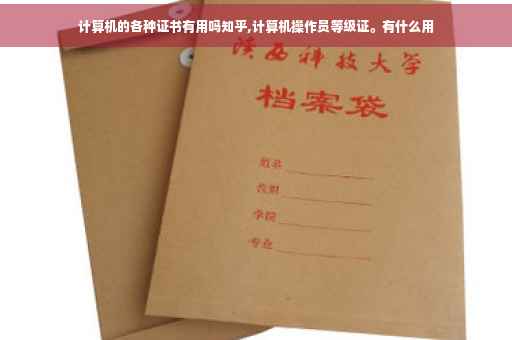 计算机的各种证书有用吗知乎,计算机操作员等级证。有什么用
陕西科技大学
档案袋
姓名
类别
学院
专业